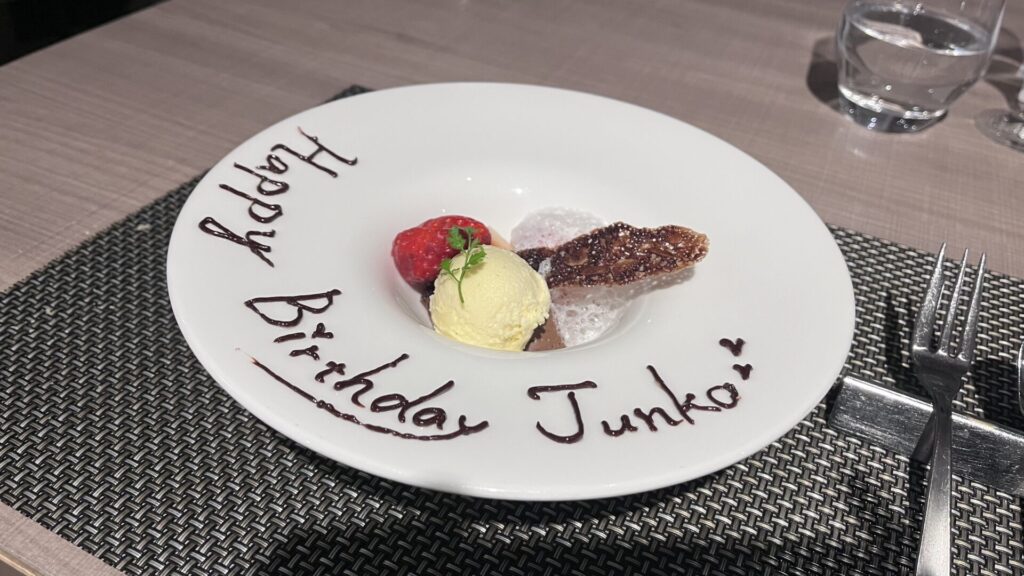 Happy
Birthday
Junko